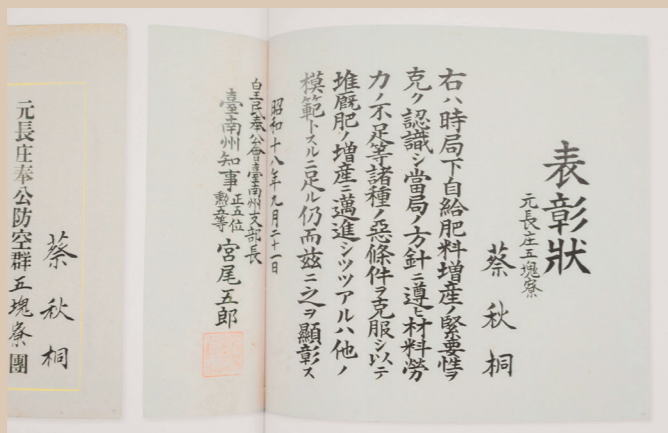 表彰狀
元長庄五塊寮
蔡秋桐
右ハ時局下自給肥料増産ノ緊要性ヲ
克ク認識シ當局ノ方針ニ遵ヒ材料勞
力ノ不足等諸種ノ惡條件ヲ克服シ以テ
堆厩肥ノ増産ニ邁進シツツアルハ他ノ
模範トスルニ足ル仍而茲ニ之ヲ顯彰ス
昭和十八年九月二十一日
皇民奉公會臺南州支部長
臺南州知事
正五位
勲五等
宮尾五郎
蔡秋桐
元長庄奉公防空群五塊寮團